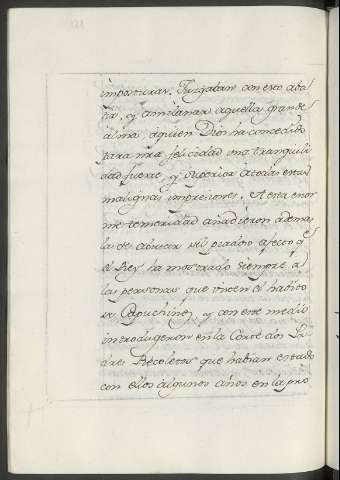 imposturas. Juzgaban con esto aba-
tir, y amilanar aquella grande
alma, à quien Dios ha concedido
para nra felicidad una tranquili
dad fuerte, y superior à todas estas
malignas impresiones. A esta enor
me temeridad añadieron ademas
la de abusar del piadoso afecto q.e
el Rey ha mostrado siempre à
las personas que visten el habito
de Capuchinos, y con este medio
introdugeron en la Corte dos Pa
dres Recoletos que habian estado
con ellos algunos años en la pro